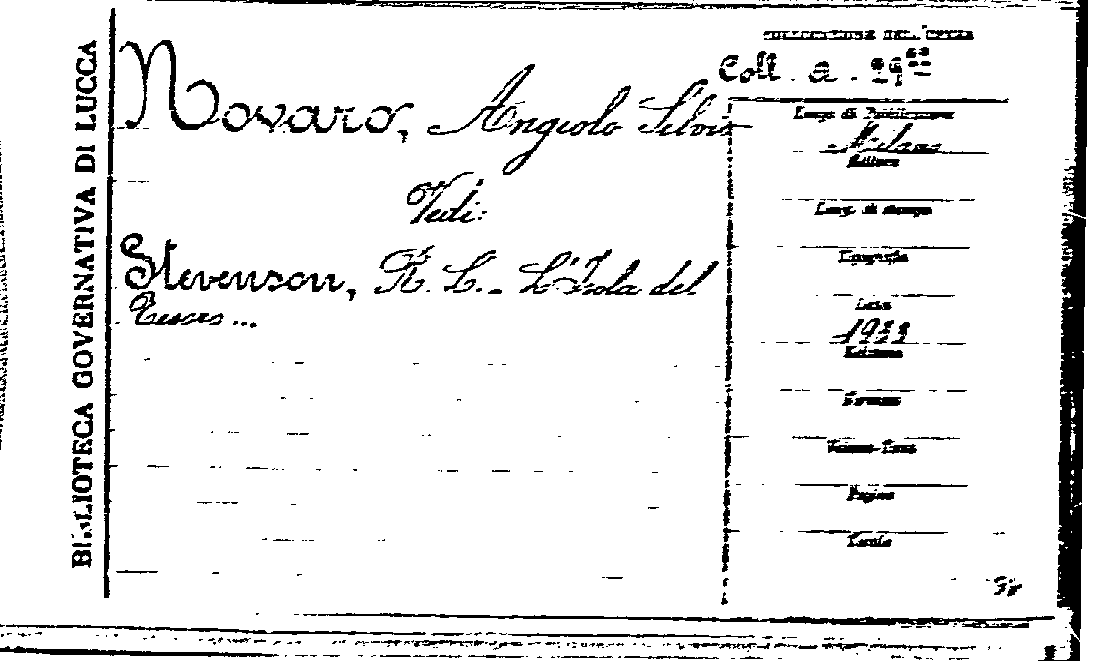 BIBLIOTECA GOVERNATIVA DI LUCCA
COLLOCAZIONE DELL'OPERA
Coll. a. 29
Novaro, Angiolo Silvio
Vedi:
Stevenson, R. L. - L'Isola del
Tesoro ...
Luogo di Pubblicazione
Milano
Editore
Luog. di stampa
Tipografia
Data
1933
Edizione
Formato
Volume-Tomo
Pagine
Tavole